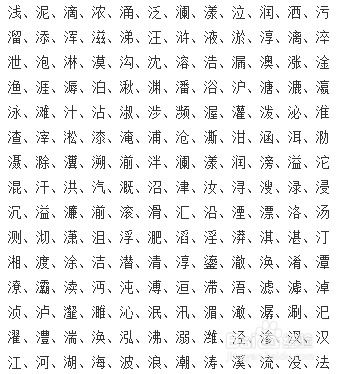 浅、泥、滴、浓、涌、泛、澜、漾、泣、润、洒、污
溜、添、浑、滋、涕、汪、浒、液、淤、淳、漓、淬
泄、泡、淋、漠、沟、沈、溶、浩、漏、澳、涨、淦
渔、涯、潺、泊、湫、渊、潘、浴、沪、溏、漉、灜
泳、滩、汁、沾、淑、涉、濒、渥、灌、泼、泌、淮
渣、滓、淞、漆、淹、浦、沧、澌、泔、涵、洱、泐
滠、滁、瀵、溯、湔、泮、澜、漾、润、滂、溢、沱
混、汗、洪、汽、溉、沼、津、汝、浔、溲、渌、浸
沉、溢、濂、湔、滚、滑、汇、沿、湮、漂、洛、汤
测、沏、潇、沮、浮、淝、滔、淫、漭、淇、湛、汀
湘、渡、涂、洁、潜、清、淳、鎏、澈、涣、淆、潭
潦、灞、渎、沔、沌、溥、洹、滞、浯、滤、滹、淖
浈、泸、瀣、濉、沁、泯、汛、湄、澉、潺、涮、汜
濯、澧、湍、涣、泓、沸、溺、潍、泾、渝、汉
江、河、湖、海、波、浪、潮、涛、溪、流、没、法